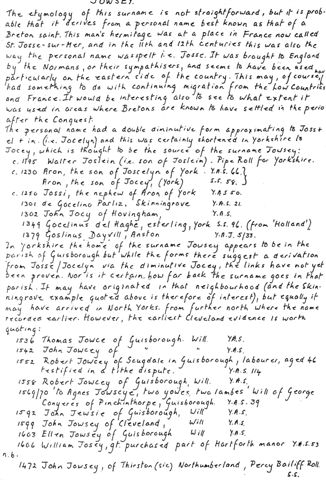 JOWSEY.
The etymology of this surname is not straightforward, but it is prob-
able that it derives from a personal name best known as that of a
Breton saint. This man's hermitage was at a place in France now called
St. Josse-sur-Mer, and in the 11th and 12th centuries this was also the
way the personal name was spelt i.e. Josse. It was brought to England
by the Normans, or their sympathisers, and seems to have been used
particularly on the eastern side of the country. This may, of course,
had something to do with continuing migration from the Low Countries
and France. It would be interesting also to see to what extent it
was used in areas where Bretons are known to have settled in the perio
after the Conquest.
The personal name had a double diminutive form approximating to Joss +
el + in. (i.e. Jocelyn) and this was certainly shortened in Yorkshire to
Jocey, which is thought to be the source of the surname Jowsey:
c. 1195 Walter Joslein (i.e. son of Joslein). Pipe Roll for Yorkshire.
c. 1230 Aron, the son of Joscelyn of York. Y.A.S. 66
Aron, the son of Jocey, (York) S.S. 58.
c. 1250 Jossi, the nephew of Aron of York Y.A.S 50.
1301 de Gocelino Parliz. Skinningrove Y.A.S. 21
1302 John Jocy of Hovingham, Y.A.S.
1349 Gocelinus del Haghe, esterling, York S.S. 96. (from 'Holland')
1379 Goslinus Dayvill, Anston Y.A.J. 5/33.
In Yorkshire the home of the surname Jowsey appears to be in the
parish of Guisborough but while the forms there suggest a derivation
from Josse/Jocelyn via the diminutive Jocey, the links have not yet
been proven. Nor is it certain how far back the surname goes in that
parish. It may have originated in that neighbourhood (and the Skin-
ningrove example quoted above is therefore of interest), but equally it
may have arrived in North Yorks. from further north where the name
recorded earlier. However, the earliest Cleveland evidence is worth
quoting:
1536 Thomas Jowce of Guisborough. Will Y.A.S.
1542 John Jowcey of " " Y.A.S.
1552 Robert Jowsey of Scugdale in Guisborough, labourer, aged 46
testified in a tithe dispute. Y.A.S. 114
1558 Robert Jowcey of Guisborough, Will. Y.A.S.
1569/70 'to Agnes Jowscye, two yowes two lambes' Will of George
Conyeres of Pinchinthorpe, Guisborough Y.A.S. 39
1592 John Jewsie of Guisborough, Will Y.A.S.
1599 John Jowsey of Cleveland, Will Y.A.S.
1603 Ellen Jowsey of Guisborough Will Y.A.S.
1606 William Josey, gt. purchased part of Hartforth manor Y.A.S. 53
n.b.
1472 John Jowsey, of Thirston (sic) Northumberland, Percy Bailiff Roll
S.S.